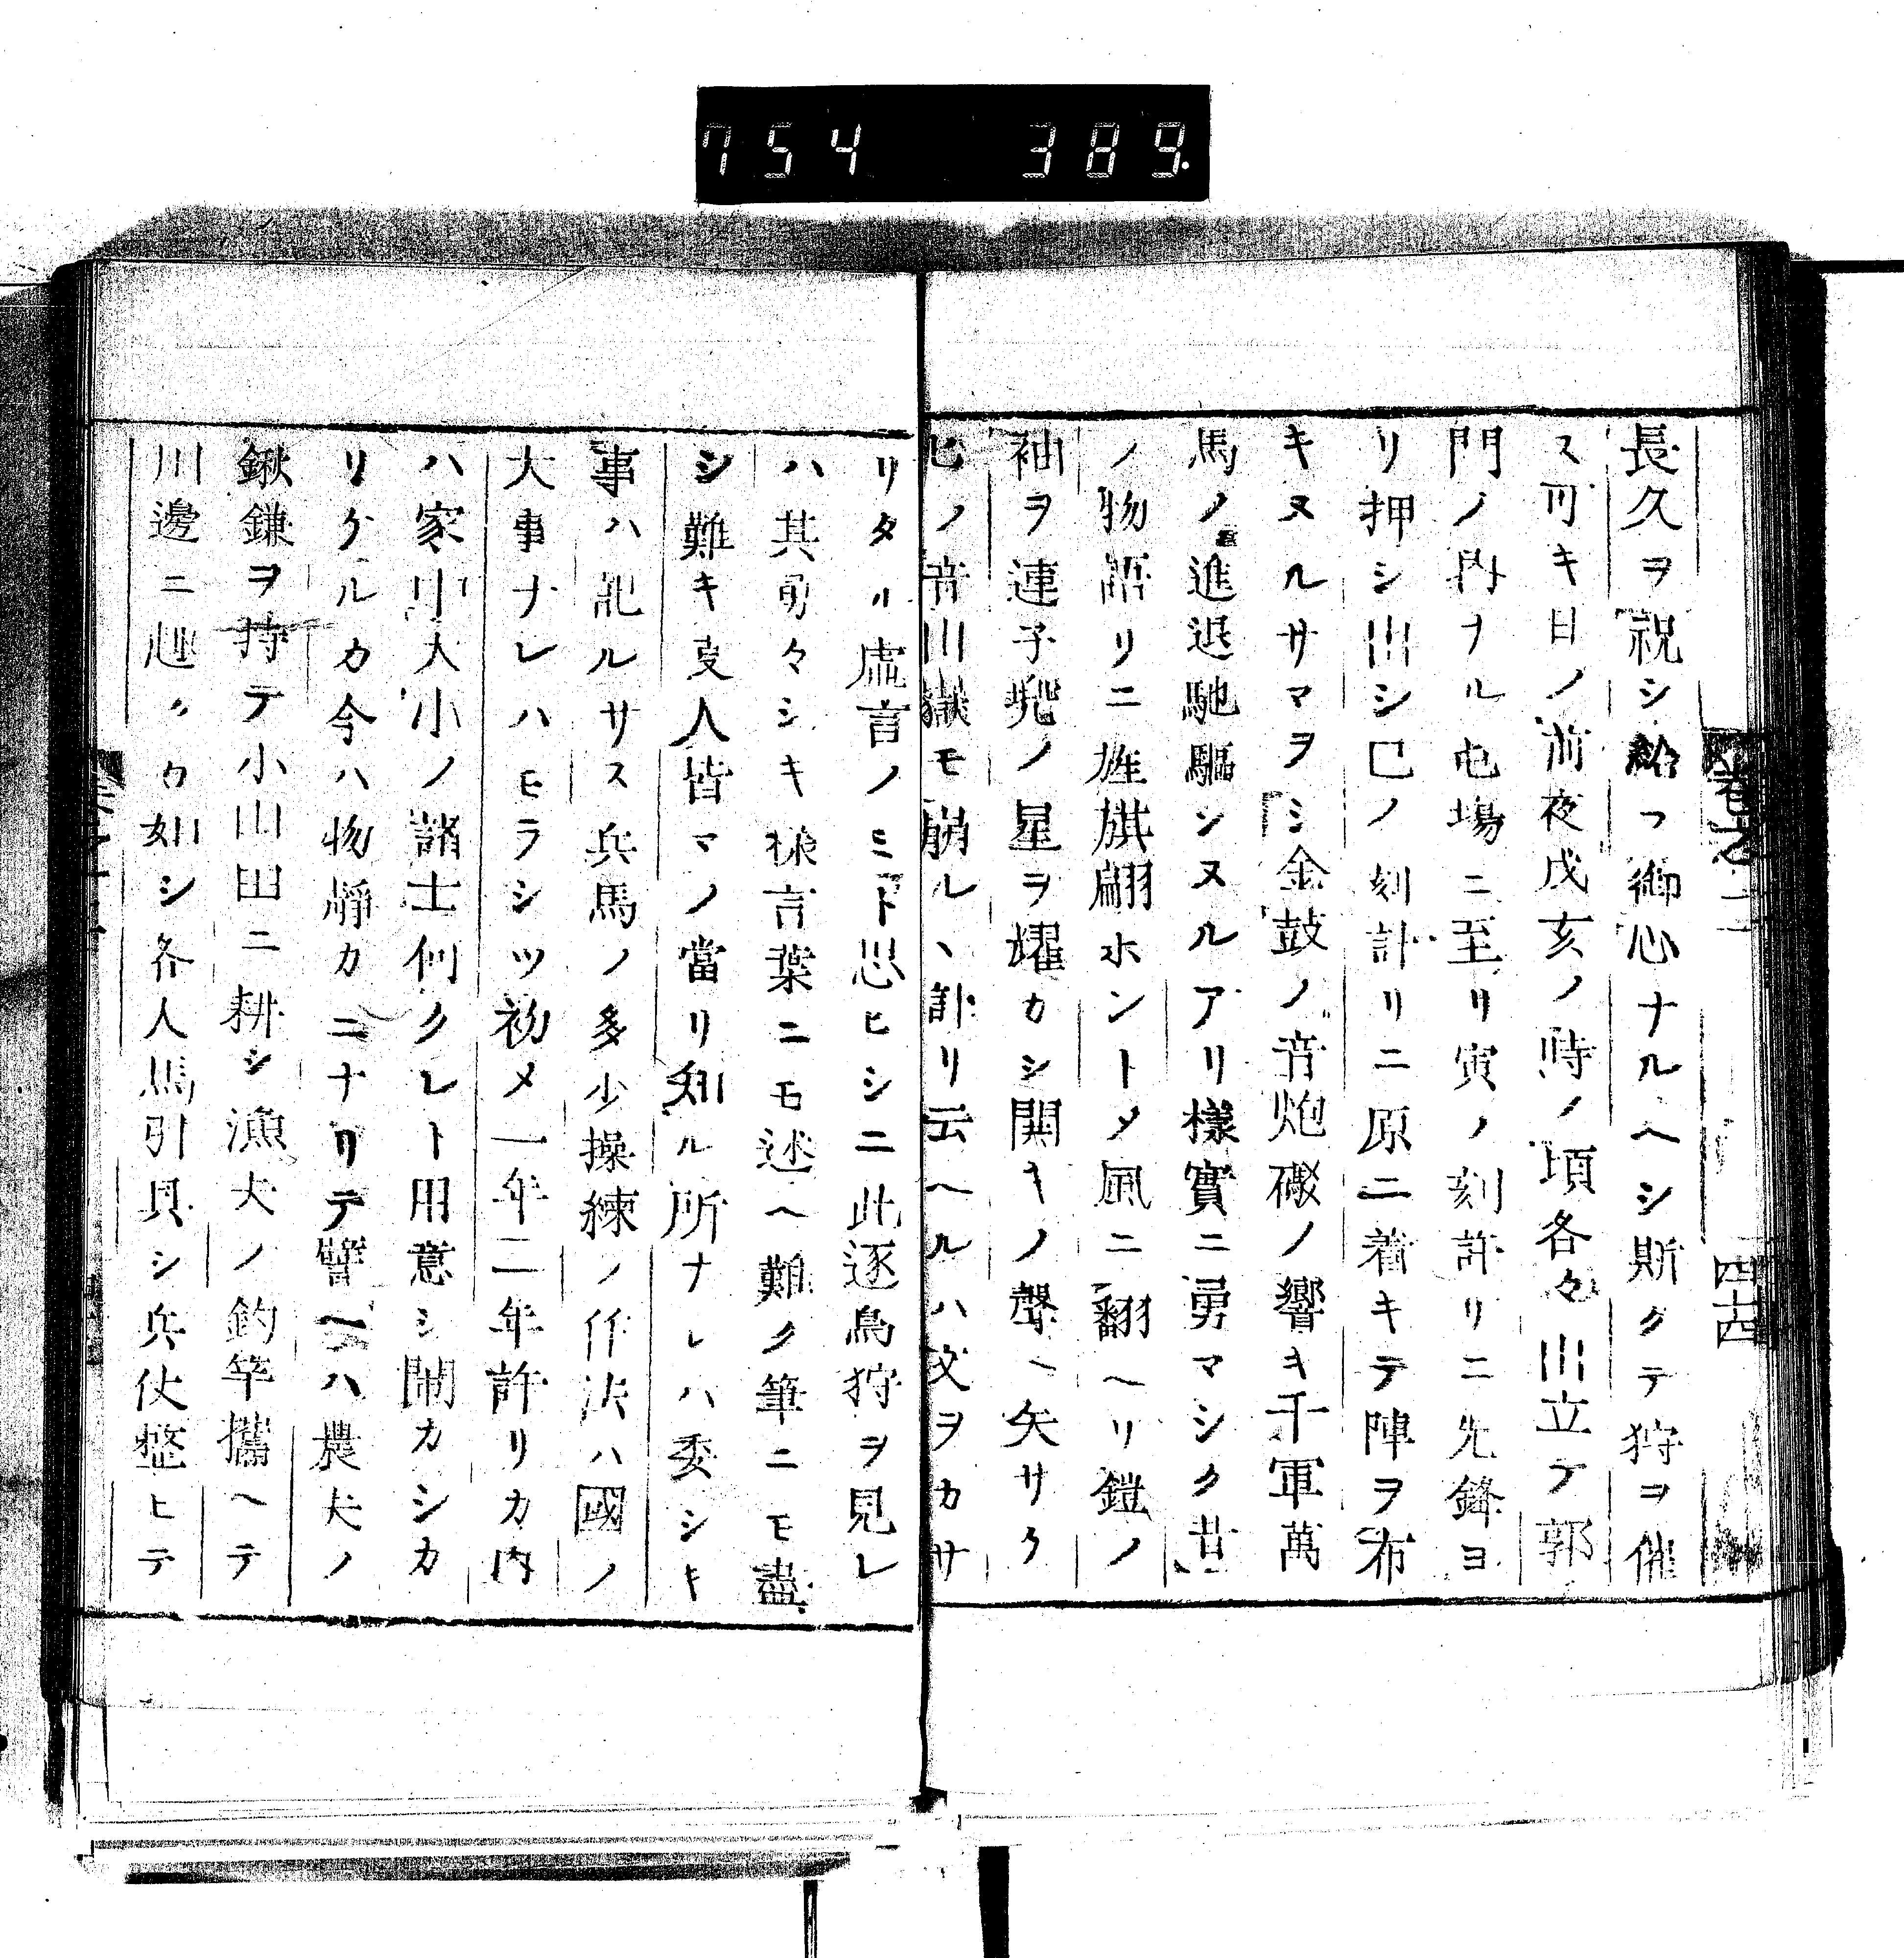 754 389
卷之二 四十四
長久ヲ祝シ給フ御心ナルヘシ斯クテ狩ヲ催
ス可キ日ノ前夜戌亥ノ時ノ頃各々出立テ郭
門ノ内ナル屯場ニ至リ寅ノ刻許リニ先鋒ヨ
リ押シ出シ巳ノ刻計リニ原ニ着キテ陣ヲ布
キヌルサマヲシ金鼓ノ音炮礮ノ響キ千軍萬
馬ノ進退馳驅シヌルアリ樣實ニ勇マシク昔
ノ物語リニ旌旗翩ホントメ風ニ翻ヘリ鎧ノ
袖ヲ連子兠ノ星ヲ耀カシ関キノ聲ヘ矢サク
ヒノ音山嶽モ崩ルヽ計リ云ヘルハ文ヲカサ
リタル虚言ノミト思ヒシニ此逐鳥狩ヲ見レ
ハ其勇々シキ樣言葉ニモ述ヘ難ク筆ニモ盡
シ難キ支人皆マノ當リ知ル所ナレハ委シキ
事ハ記ルサス兵馬ノ多少操練ノ作法ハ國ノ
大事ナレハモラシツ初メ一年二年許リカ内
ハ家中大小ノ諸士何クレト用意シ閙カシカ
リケルカ今ハ物靜カニナリテ譬ヘハ農夫ノ
鍬鎌ヲ持テ小山田ニ耕シ漁夫ノ釣竿攜ヘテ
川邊ニ趣クカ如シ各人馬引具シ兵仗整ヒテ